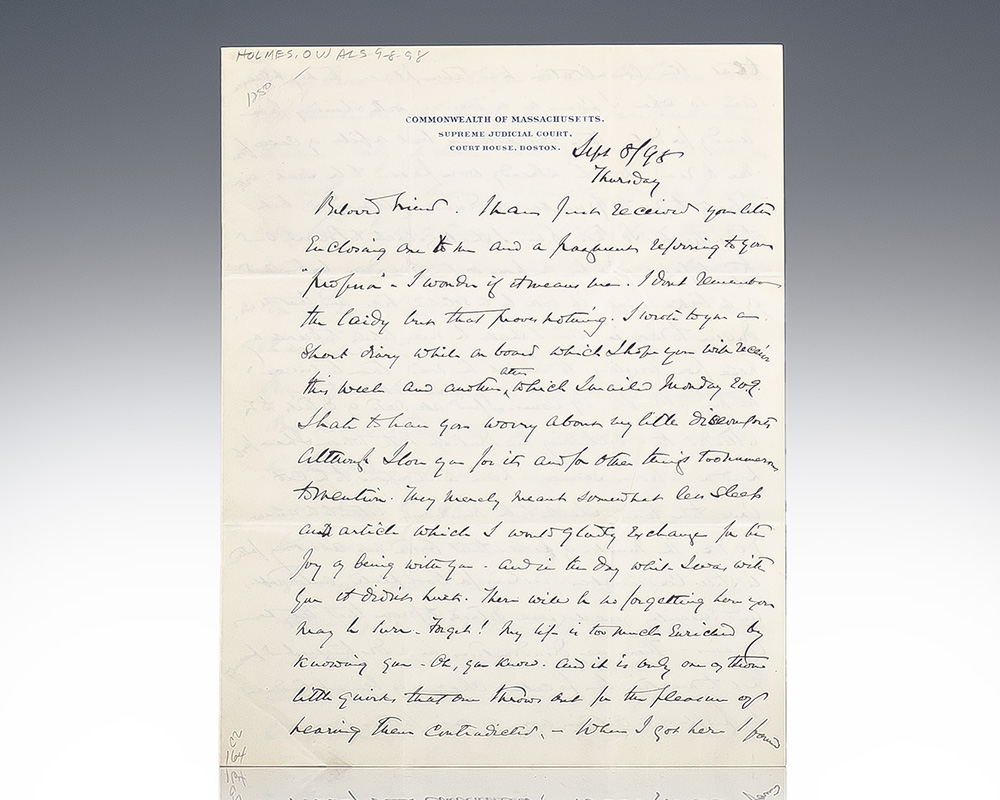 HOLMES, O W ALS 9-8-98
1250
COMMONWEALTH OF MASSACHUSETTS.
SUPREME JUDICIAL COURT,
COURT HOUSE, BOSTON.
Sept 8/98
Thursday
Beloved friend. I have just received your letter
enclosing one to me and a fragment referring to your
"profile" - I wonder if it means me. I dont remember
the lady but that proves nothing. I wrote to you a
short diary while on board which I hope you will receive
this week and another, after which I mailed Monday evg.
I hate to have you worry about my little discomforts
although I love you for it and for other things too numerous
to mention. They merely meant somewhat less sleep
an article which I would gladly exchange for the
joy of being with you - and in the day while I was with
you it didn't hurt. There will be no forgetting here you
may be sure - Forget! My life is too much enriched by
knowing you - Oh, you know. And it is only one of those
little quirks that one throws out for the pleasure of
hearing them contradicted. - When I got here I found
164